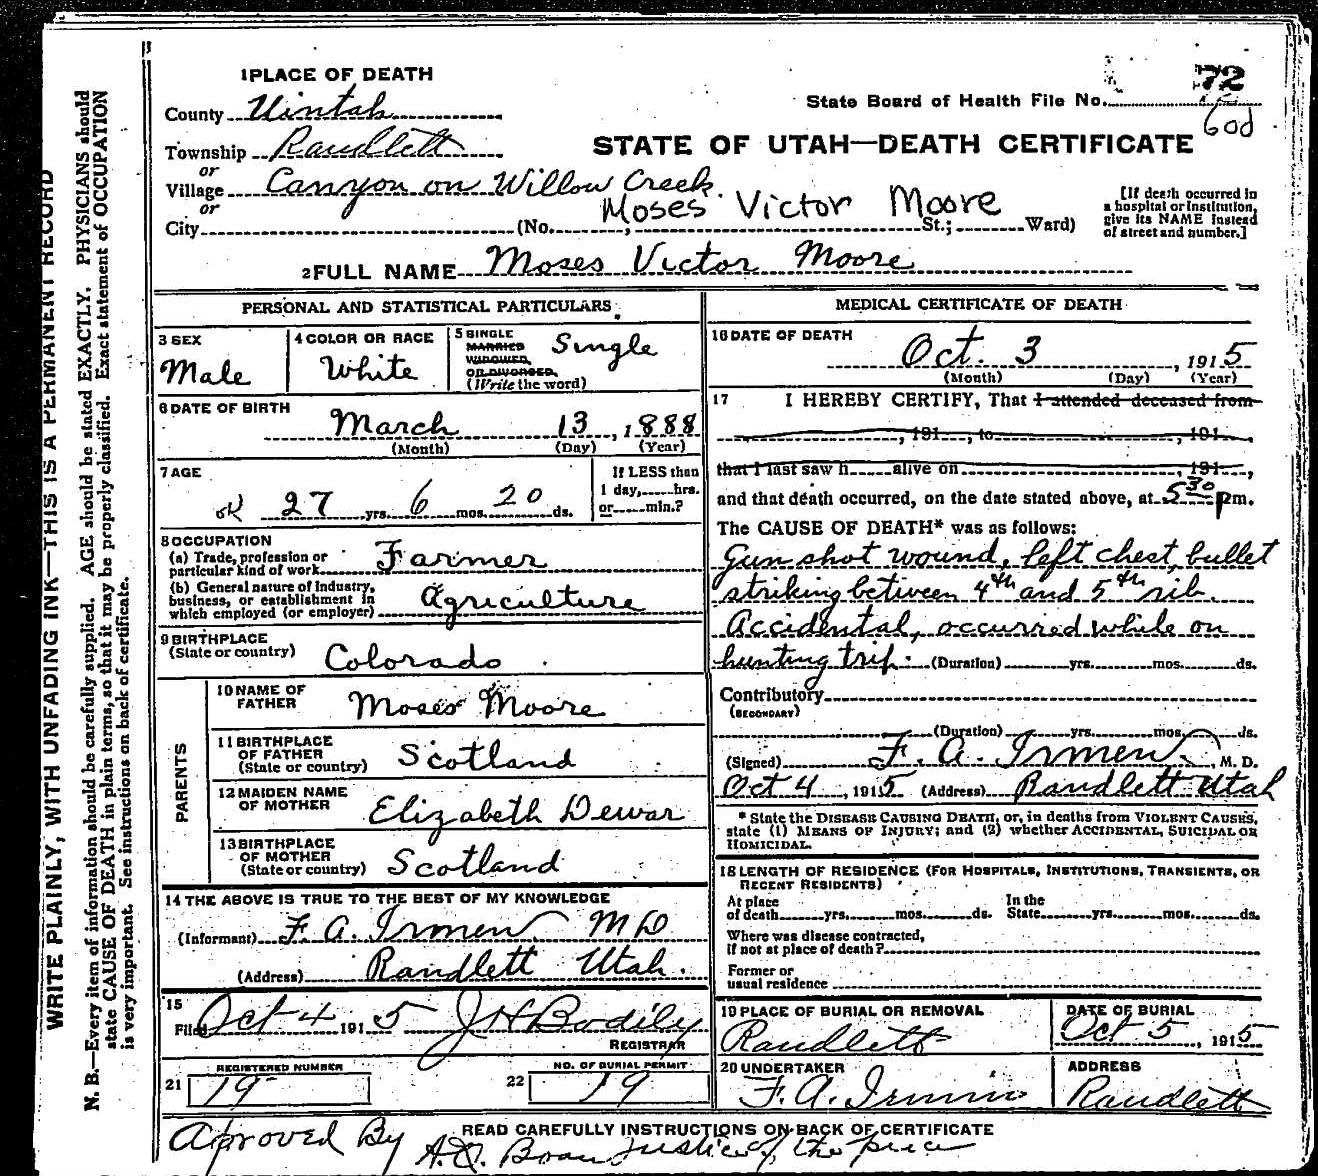 1 PLACE OF DEATH
72
State Board of Health File No.
60d
County Uintah
Township Randlett
STATE OF UTAH—DEATH CERTIFICATE
or
Village Canyon on Willow Creek
or
Moses Victor Moore
City (No. , St.; Ward)
[If death occurred in
a hospital or institution,
give its NAME instead
of street and number.]
2 FULL NAME Moses Victor Moore
PERSONAL AND STATISTICAL PARTICULARS
3 SEX
Male
4 COLOR OR RACE
White
5 SINGLE
MARRIED
WIDOWED,
OR DIVORCED.
(Write the word)
Single
6 DATE OF BIRTH
March 13, 1888
(Month) (Day) (Year)
7 AGE
OK 27 yrs. 6 mos. 20 ds.
If LESS than
1 day, hrs.
or min.?
8 OCCUPATION
(a) Trade, profession or
particular kind of work Farmer
(b) General nature of Industry,
business, or establishment in
which employed (or employer) Agriculture
9 BIRTHPLACE
(State or country) Colorado
PARENTS
10 NAME OF
FATHER Moses Moore
11 BIRTHPLACE
OF FATHER
(State or country) Scotland
12 MAIDEN NAME
OF MOTHER Elizabeth Dewar
13 BIRTHPLACE
OF MOTHER
(State or country) Scotland
14 THE ABOVE IS TRUE TO THE BEST OF MY KNOWLEDGE
(Informant) F. A. Irmen MD
(Address) Randlett Utah.
15
Filed Oct 4 1915 J H Bodily
REGISTRAR
REGISTERED NUMBER
21 19
NO. OF BURIAL PERMIT
22 19
MEDICAL CERTIFICATE OF DEATH
16 DATE OF DEATH
Oct. 3, 1915
(Month) (Day) (Year)
17 I HEREBY CERTIFY, That I attended deceased from
, 191 , to , 191 ,
that I last saw h alive on , 191 ,
and that death occurred, on the date stated above, at 5 30 pm.
The CAUSE OF DEATH* was as follows:
Gun shot wound, left chest, bullet
striking between 4th and 5th rib.
Accidental, occurred while on
hunting trip. (Duration) yrs. mos. ds.
Contributory
(SECONDARY)
(Duration) yrs. mos. ds.
(Signed) F. A. Irmen, M. D.
Oct 4, 1915 (Address) Randlett Utah
* State the DISEASE CAUSING DEATH, or, in deaths from VIOLENT CAUSES,
state (1) MEANS OF INJURY; and (2) whether ACCIDENTAL, SUICIDAL OR
HOMICIDAL.
18 LENGTH OF RESIDENCE (FOR HOSPITALS, INSTITUTIONS, TRANSIENTS, OR
RECENT RESIDENTS)
At place
of death yrs. mos. ds.
In the
State yrs. mos. ds.
Where was disease contracted,
if not at place of death?
Former or
usual residence
19 PLACE OF BURIAL OR REMOVAL
Randlett
DATE OF BURIAL
Oct 5, 1915
20 UNDERTAKER
F. A. Irmin
ADDRESS
Randlett
READ CAREFULLY INSTRUCTIONS ON BACK OF CERTIFICATE
Aproved By Justice of the peace
WRITE PLAINLY, WITH UNFADING INK—THIS IS A PERMANENT RECORD
N. B.—Every item of information should be carefully supplied. AGE should be stated EXACTLY. PHYSICIANS should
state CAUSE OF DEATH in plain terms, so that it may be properly classified. Exact statement of OCCUPATION
is very important. See instructions on back of certificate.